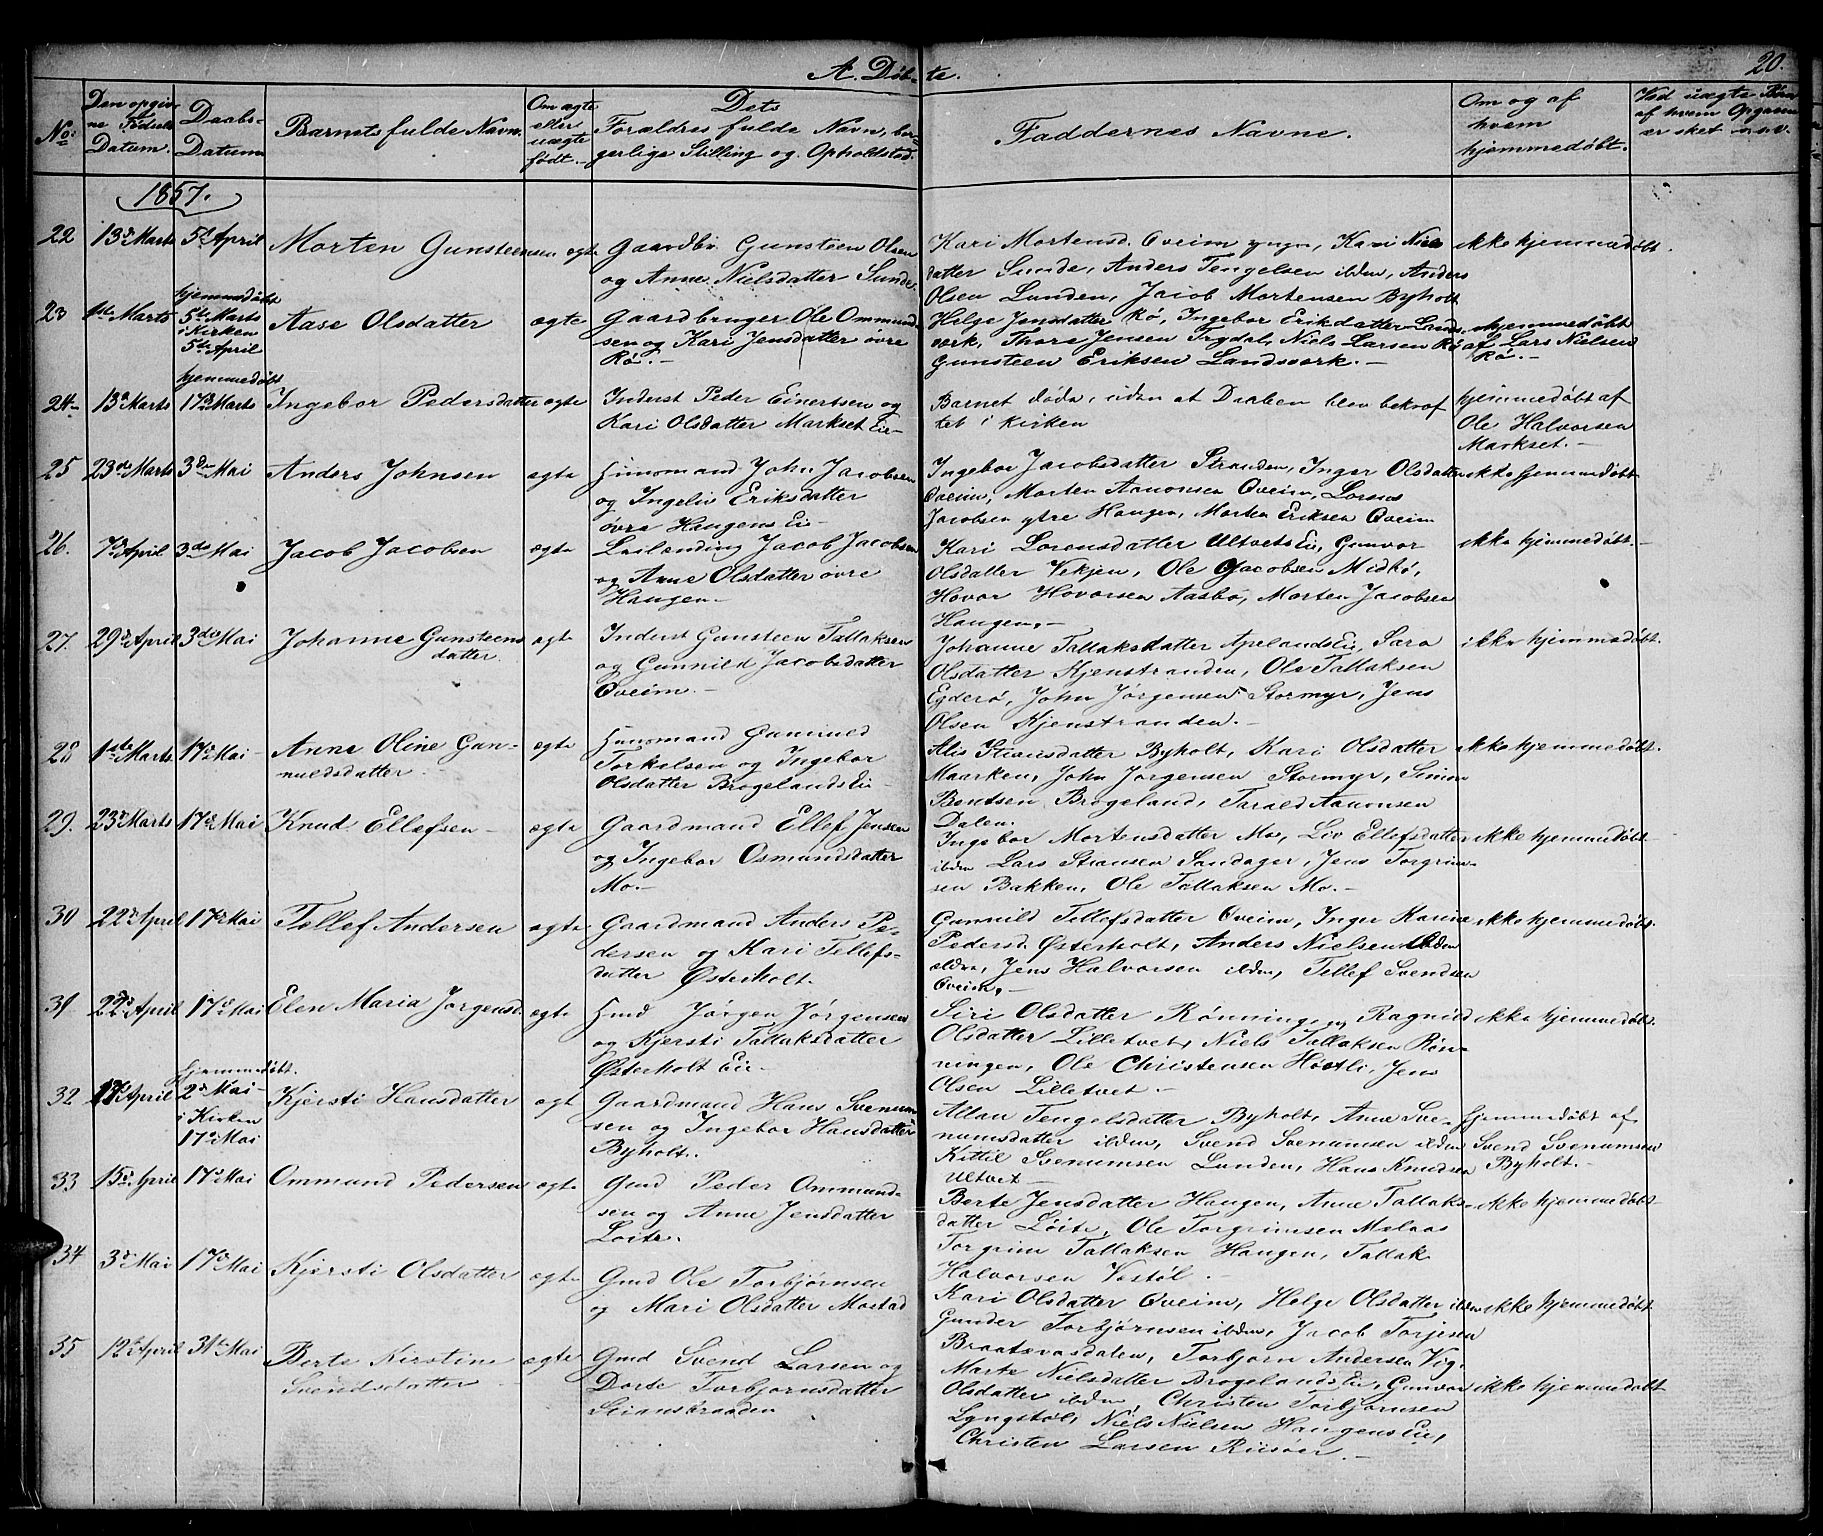 A. Døb-te. 20.
No: Den opgivne Fødsels Datum. Daabs-Datum Barnets fulde Navn. Om ægte eller uægte født.- Dets Forældres fulde Navn, borgerlige Stilling og Opholdsted. Faddernes Navne. Om og af hvem hjemmedøbt. Ved uægte Børn af hvem Opgaven er sket o.s.v.
1857.
22 13de Marts 5te April Morten Gunsteensen ægte Gaardbr. Gunsteen Olsen
og Anne Nielsdatter Sunde.
Kari Mortensd. Oveim yngre, Kari Niels
datter Sunde, Anders Tengelsen ibdm, Anders
Olsen Lunden, Jacob Mortensen Byholt
ikke hjemmedøbt.
23 1ste Marts hjemmedøbt
5te Marts
i Kirken
5te April
Aase Olsdatter ægte Gaardbruger Ole Ommund-
sen og Kari Jensdatter øvre
Rø.-
Helge Jensdatter Rø, Ingebor Eriksdatter Lands-
værk, Thore Jensen Trydal, Niels Larsen Rø
Gunsteen Eriksen Landsverk.-
hjemmedøbt
af Lars Nielsen
Rø.-
24- 13de Marts hjemmedøbt
17de Marts
Ingebor Pedersdatter ægte Inderst Peder Einertsen og
Kari Olsdatter Markset Eie-
Barnet døde, uden at Daaben blev bekræf
tet i Kirken
hjemmedøbt af
Ole Halvorsen
Markset.-
25 23de Marts 3die Mai Anders Johnsen ægte Huusmand John Jacobsen
og Ingeliv Eriksdatter
øvre Haugens Eie-
Ingebor Jacobsdatter Stranden, Inger Olsdatter
Oveim, Morten Aanonsen Oveim, Lorens
Jacobsen ytre Haugen, Morten Eriksen Oveim
ikke hjemmedøbt
26. 7de April 3die Mai Jacob Jacobsen ægte Leilænding Jacob Jacobsen
og Anne Olsdatter øvre
Haugen-
Kari Lorensdatter Ultvets Eie, Gunvor
Olsdatter Vekjen, Ole Jacobsen Midbø,
Hovor Hovorsen Aasbø, Morten Jacobsen
Haugen.-
ikke hjemmedøbt.-
27. 29de April 3die Mai Johanne Gunsteens
datter.
ægte Inderst Gunsteen Tallaksen
og Gunnild Jacobsdatter
Oveim.-
Johanne Tallaksdatter Apelands Eie, Sara
Olsdatter Kjenstranden, Ole Tallaksen
Egderø, John Jørgensen Stormyr, Jens
Olsen Kjenstranden.-
ikke hjemmedøbt.
28 1ste Marts 17de Mai Anne Oline Gun-
nuldsdatter.
ægte Huusmand Gunnuld
Torkelsen og Ingebor
Olsdatter Brøgelands Eie-
Alis Stiansdatter Byholt, Kari Olsdatter
Maarken, John Jørgensen Stormyr, Simon
Bentsen Brøgeland, Tarald Aanonsen
Dalen.
ikke hjemmedøbt.
29. 23de Marts 17de Mai Knud Ellefsen- ægte Gaardmand Ellef Jensen
og Ingebor Osmundsdatter
Mo.-
Ingebor Mortensdatter Mo, Liv Ellefsdatter
ibdm Lars Stiansen Sandager, Jens Torgrim-
sen Bakken, Ole Tallaksen Mo.-
ikke hjemmedøbt.
30 22de April 17de Mai Tellef Andersen ægte Gaardmand Anders Pe-
dersen og Kari Tellefs-
datter Østerholt.
Gunnild Tellefsdatter Oveim, Inger Karine
Pedersd. Østerholt, Anders Nielsen ibdm
ældre, Jens Halvorsen ibdm, Tellef Svendsen
Oveim.-
ikke hjemmedøbt.
31 22de April 17de Mai Elen Maria Jørgensd. ægte Hmd Jørgen Jørgensen
og Kjersti Tallaksdatter
Østerholt Eie-
Siri Olsdatter Rønningen, Ragnild
Olsdatter Lilletvet, Niels Tallaksen Røn-
ningen, Ole Christensen Høstli, Jens
Olsen Lilletvet.-
ikke hjemmedøbt.
32 17de April hjemmedøbt.
2de Mai-
i Kirken
17de Mai
Kjersti Hansdatter ægte Gaardmand Hans Svenum-
sen og Ingebor Hansdatter
Byholt.
Allau Tengelsdatter Byholt, Anne Sve-
numsdatter ibdm, Svend Svenumsen ibdm
Kittil Svenumsen Lunden, Hans Knudsen
Ultvet-
hjemmedøbt af
Svend Svenumsen
Byholt.-
33 15de April 17de Mai Ommund Pedersen ægte Gmd Peder Ommund-
sen og Anne Jensdatter
Løite.
Berte Jensdatter Haugen, Anne Tallaks-
datter Løite, Ole Torgrimsen Mælaas
Torgrim Tallaksen Haugen, Tallak
Halvorsen Vestøl.-
ikke hjemmedøbt
34 3de Mai 17de Mai Kjersti Olsdatter ægte Gmd Ole Torbjørnsen
og Mari Olsdatter Mostad
Kari Olsdatter Oveim, Helge Olsdatter ibdm
Gunder Torbjørnsen ibdm, Jacob Torjesen
Braatevasdalen, Torbjørn Andersen Vig.
ikke hjemmedøbt
35 12te April 31te Mai Berte Kirstine
Svendsdatter-
ægte Gmd Svend Larsen og
Dorte Torbjørnsdatter
Stiansbraaden
Marte Nielsdatter Brøgelands Eie, Gunvor
Olsdatter ibdm, Christen Torbjørnsen
Lyngstøl, Niels Nielsen Haugens Eie,
Christen Larsen Riisøer.-
ikke hjemmedøbt